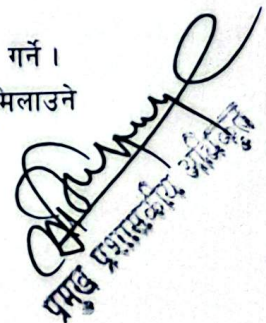 गर्ने ।
मिलाउने
प्रमुख प्रशासकीय अधिकृत